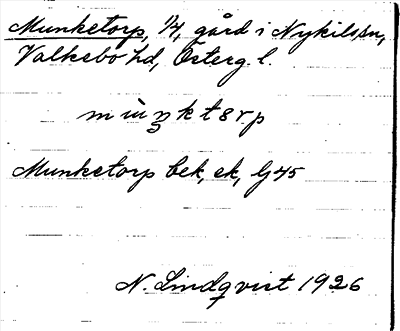 Munketorp, 1/4, gård i Nykils sn,
Valkebo hd, Österg. l.
mùŋktɛrp
Munketorp bek, ek, G45
N. Lindqvist 1926